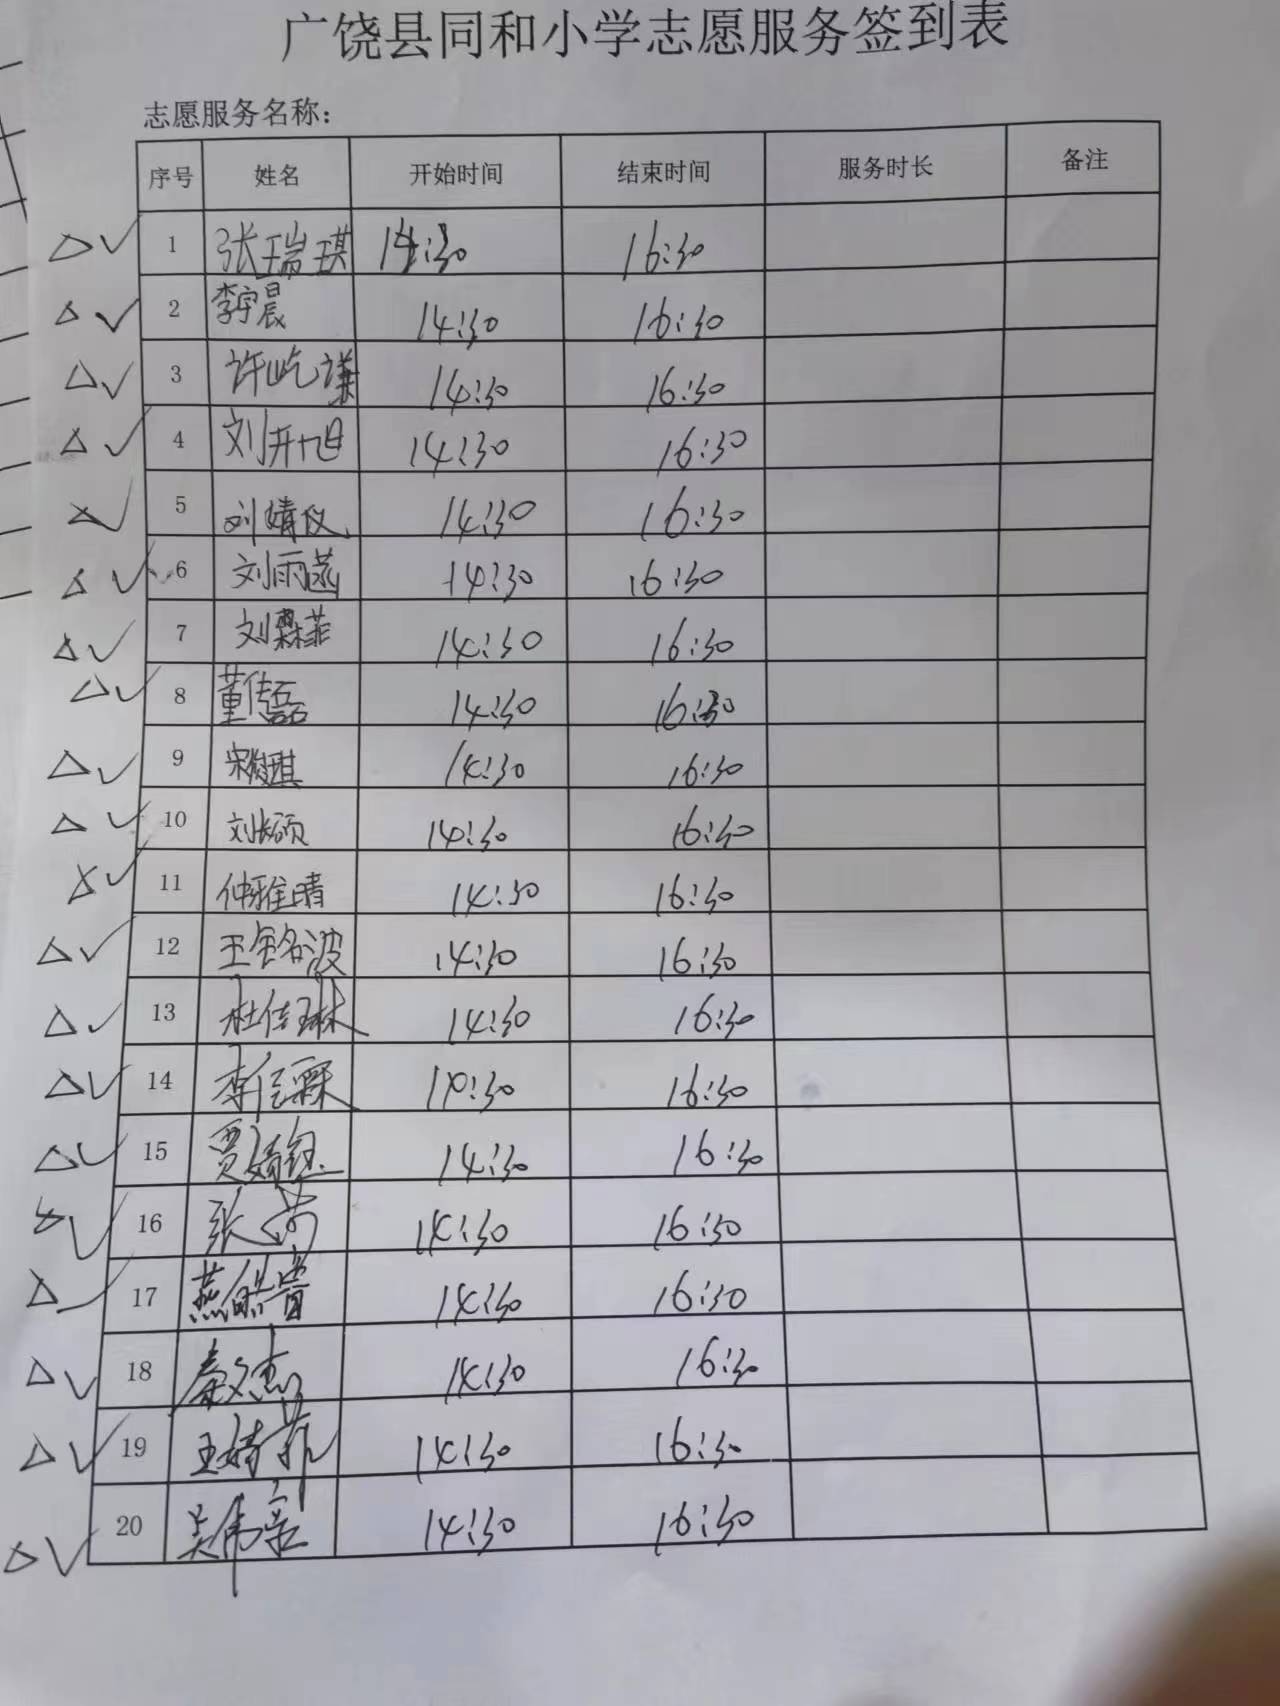 广饶县同和小学志愿服务签到表
志愿服务名称：
序号 姓名 开始时间 结束时间 服务时长 备注
1 张瑞琪 14:30 16:30
2 李宇晨 14:30 16:30
3 许屹谦 14:30 16:30
4 刘开旭 14:30 16:30
5 刘婧仪 14:30 16:30
6 刘雨菡 14:30 16:30
7 刘霖菲 14:30 16:30
8 董传磊 14:30 16:30
9 宋俊琪 14:30 16:30
10 刘长硕 14:30 16:30
11 仲雅晴 14:30 16:30
12 王铭波 14:30 16:30
13 杜佳琳 14:30 16:30
14 李佳霖 14:30 16:30
15 贾婧钰 14:30 16:30
16 张 14:30 16:30
17 燕 14:30 16:30
18 秦文杰 14:30 16:30
19 王婧菲 14:30 16:30
20 吴伟 14:30 16:30